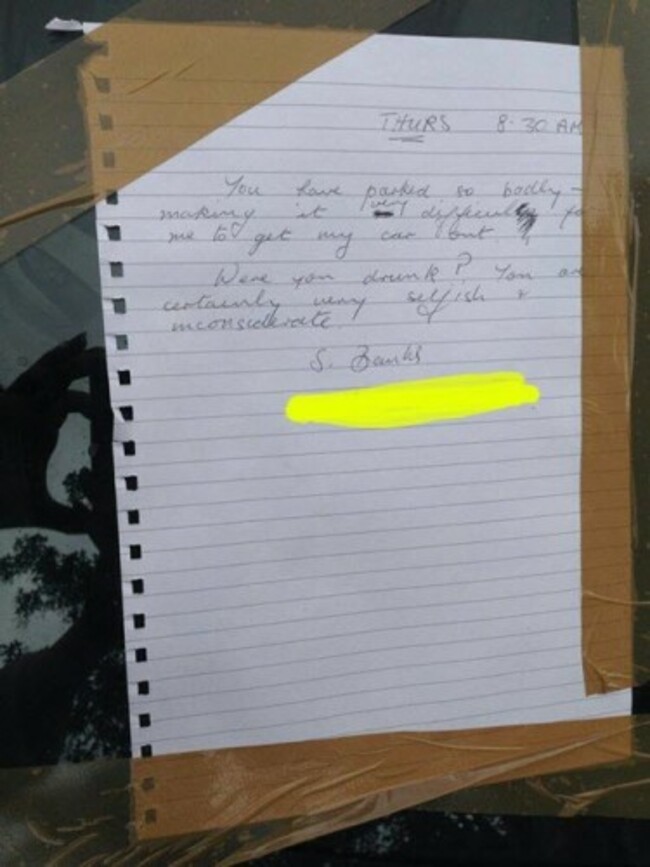 THURS 8.30 AM
You have parked so badly –
making it very difficult fo
me to get my car out.
Were you drunk? You are
certainly very selfish &
inconsiderate.
S. Banks